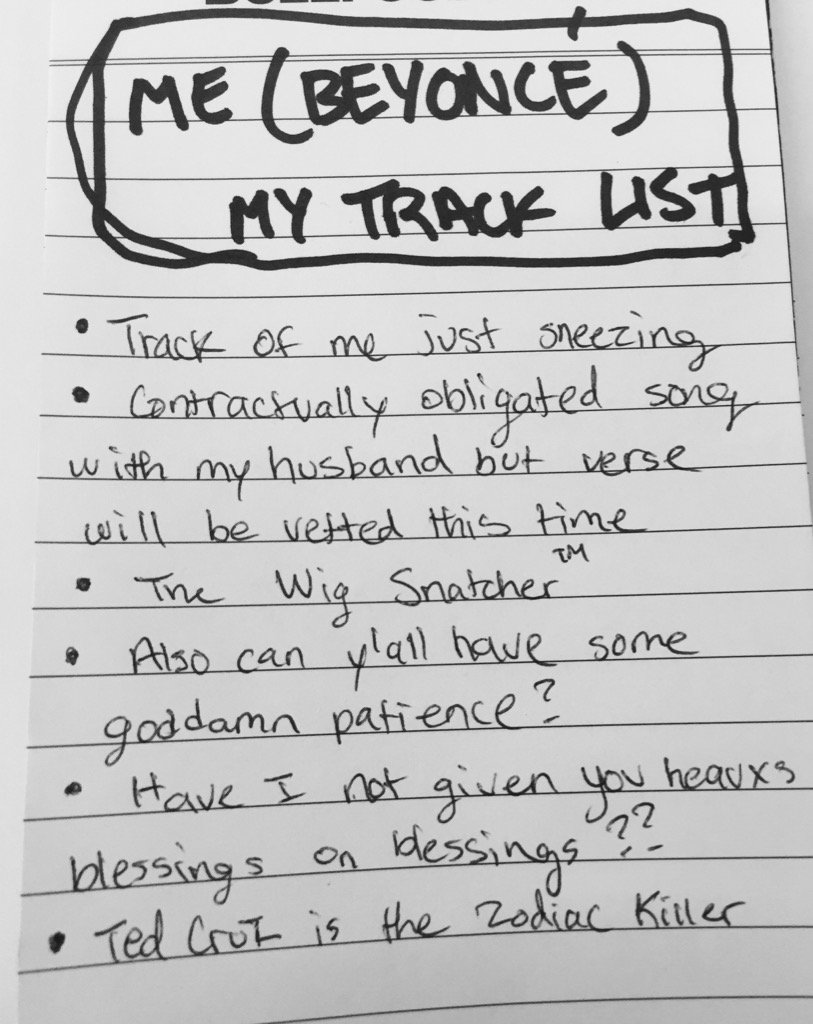 ME (BEYONCÉ)
MY TRACK LIST
• Track of me just sneezing
• Contractually obligated song
with my husband but verse
will be vetted this time
• The Wig Snatcher™
• Also can y'all have some
goddamn patience?
• Have I not given you heauxs
blessings on blessings??
• Ted Cruz is the Zodiac Killer